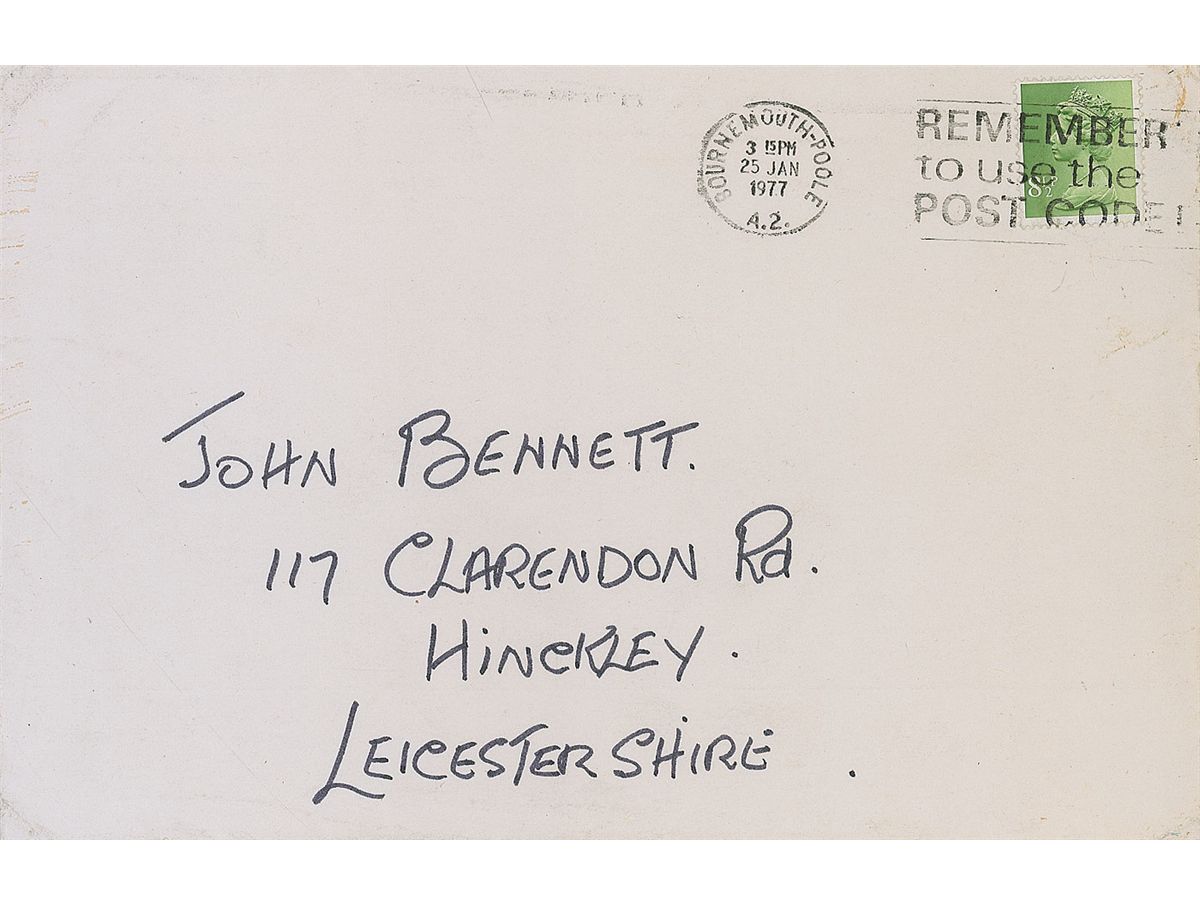 BOURNEMOUTH-POOLE
3 15PM
25 JAN
1977
A.2.
REMEMBER
to use the
POST CODE
8½
JOHN BENNETT.
117 CLARENDON Rd.
HINCKLEY.
LEICESTERSHIRE.